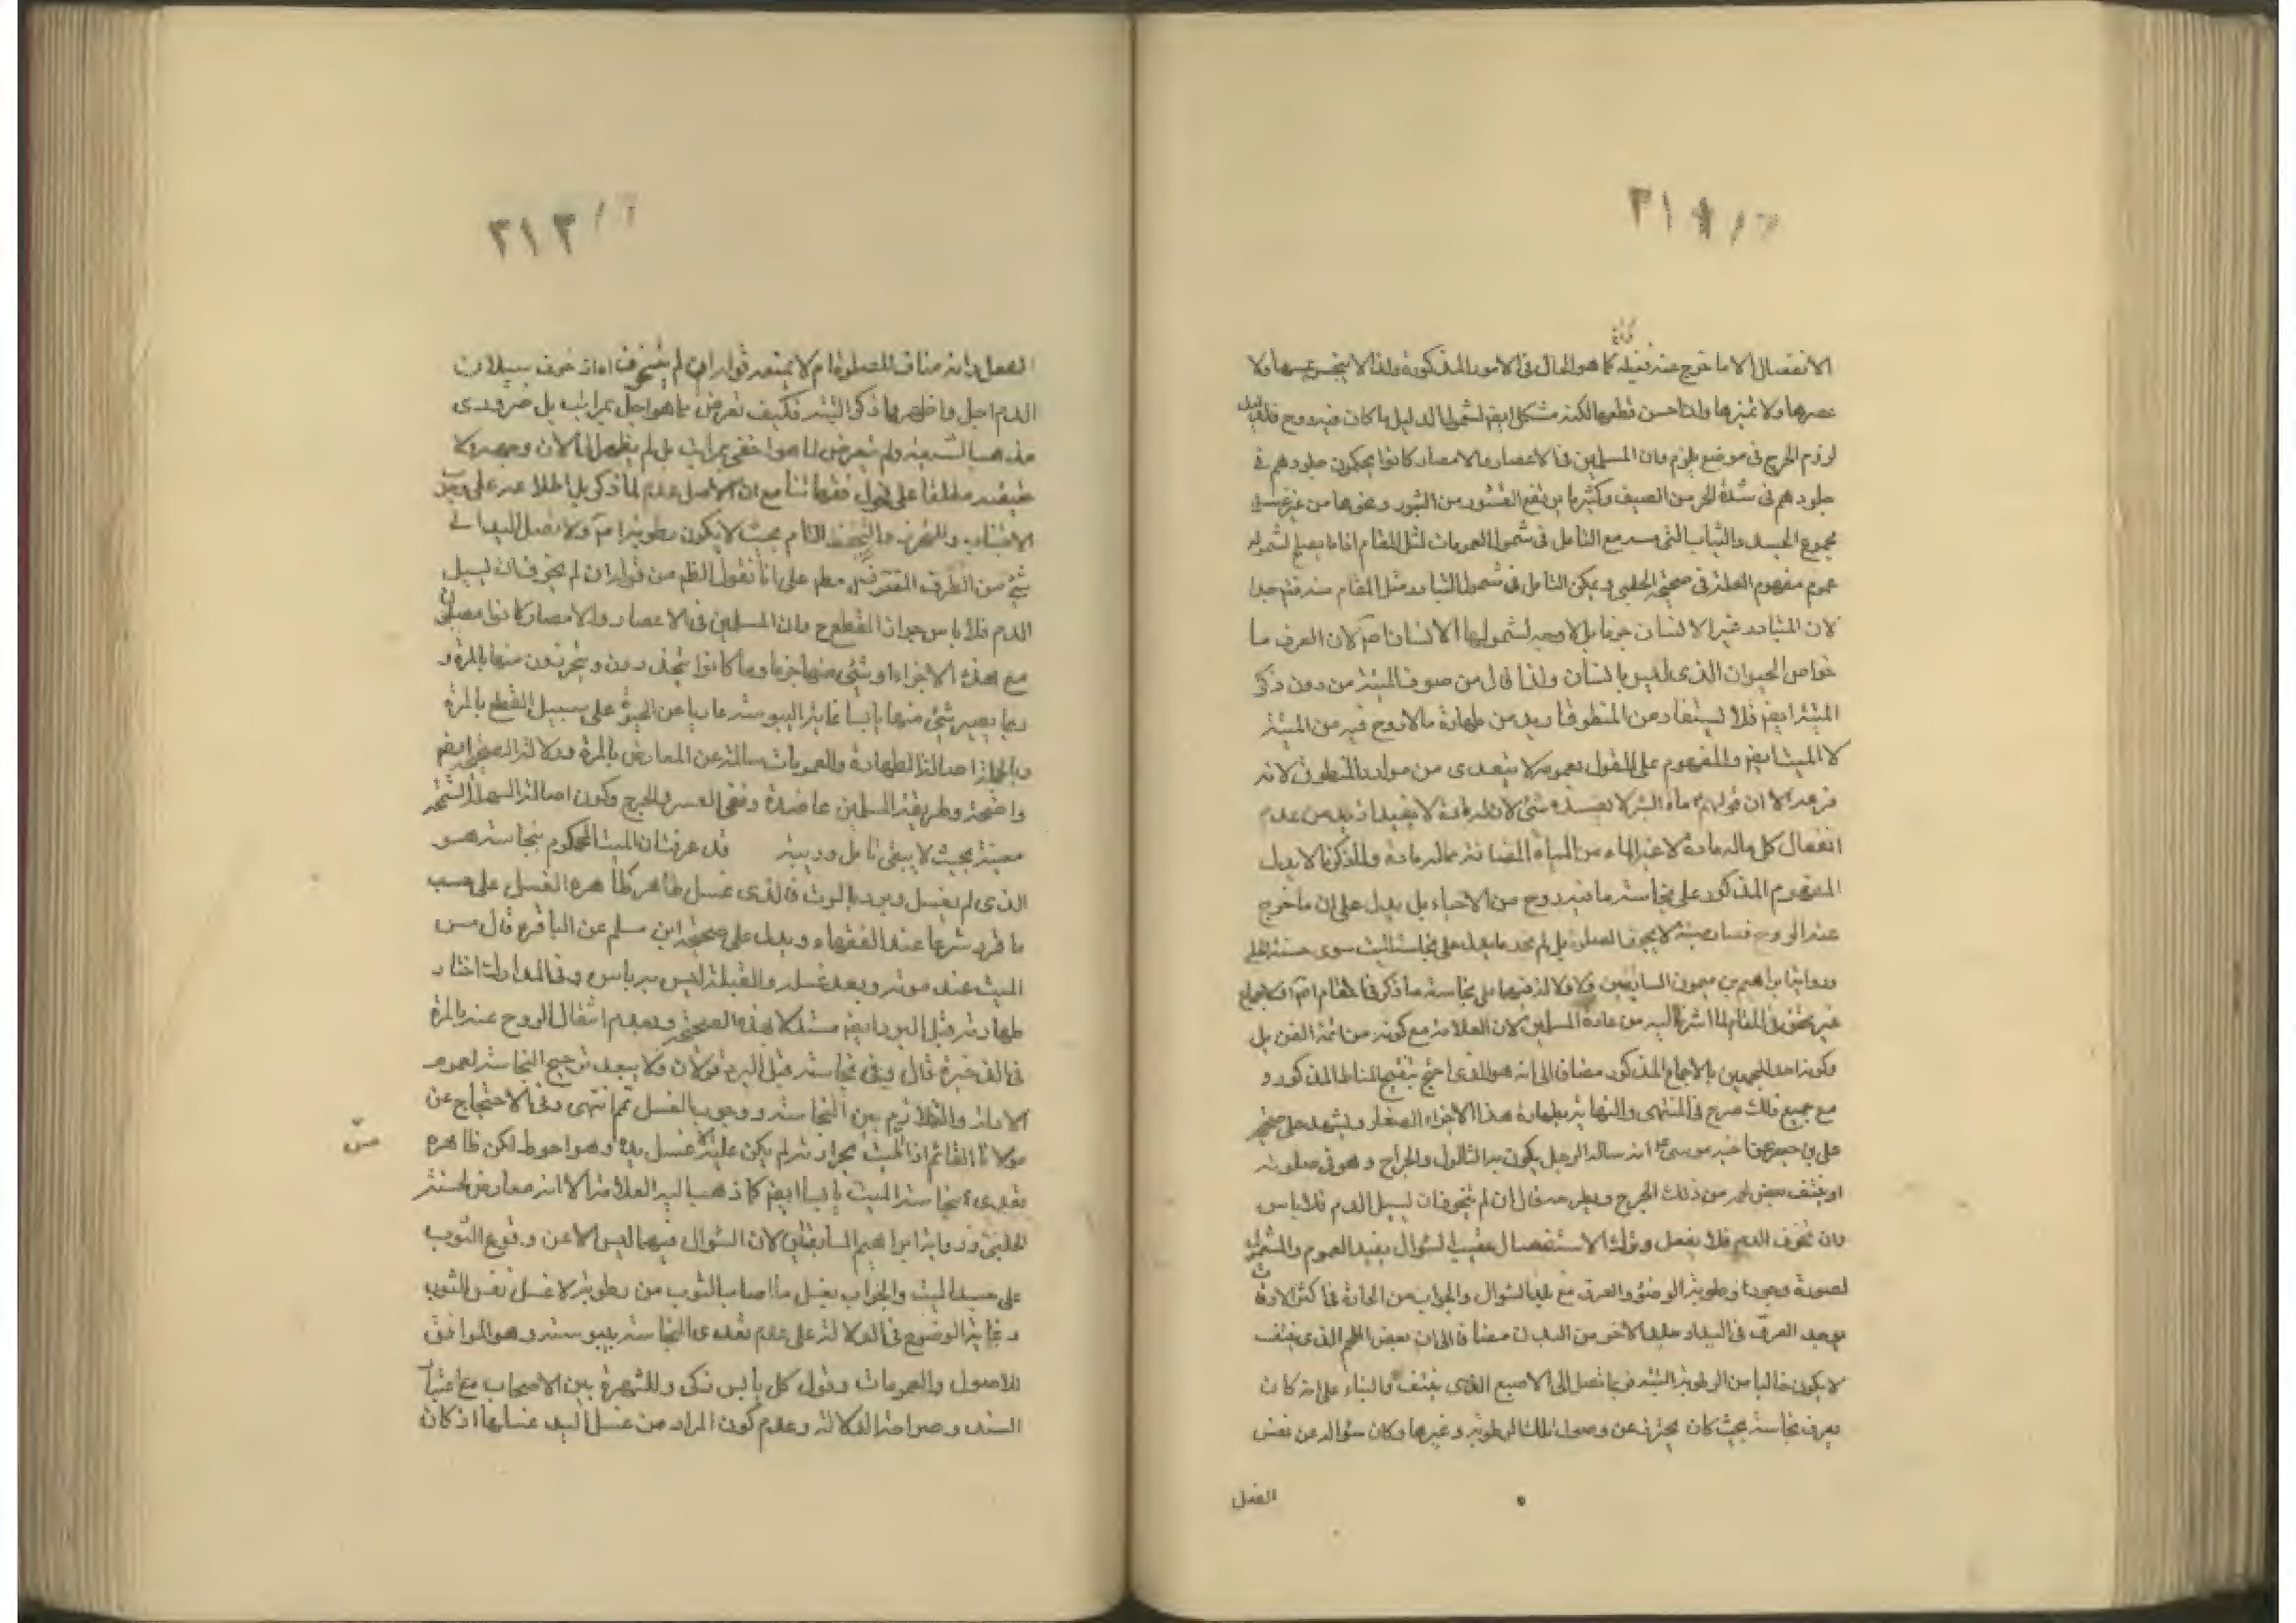 ٣١٢
الانفصال الا ما خرج عنه قبله كما هو الحال فى الامور المذكورة ولذا لا ينجس بمسها ولا
عصرها ولا غمزها ولذا حسن قطعها لكنه مشكل ايضا لشمول الدليل ما كان فيه روح
لزوم الحرج فى موضع يلزم وان المسلمين فى الاعصار والامصار كانوا يحكون جلودهم فى
جلودهم فى شدة الحر من الصيف وكثيرا ما يرتفع القشور من البثور ونحوها من غير
مجموع الجسد والثياب التى مع التامل فى شمول العمومات لمثل المقام اذا ما يصلح لشموله
عموم مفهوم العلة فى صحيحة الحلبى ويمكن التامل فى شمول المتبادر مثل المقام جدا
لان المتبادر غير الانسان جزما بل لا وجه لشمولها الانسان لان الصرف ما
خواص الحيوان الذى ليس بانسان ولذا قال من صوف الميتة من دون ذكر
الميتة ايضا فلا يستفاد من المنطوق ازيد من طهارة ما لا روح فيه من الميتة
لا الميت ايضا والمفهوم على القول بعمومه لا يتعدى من موارد المنطوق لانه
فرعه الا ان قولهم ماء البئر لا يفسده شئ لان له مادة لا يفيد ازيد من عدم
انفعال كل ماله مادة لا غير الماء من المياه المضافة مما له مادة والمذكور لا يدل
المفهوم المذكور على نجاسة ما فيه روح من الاحياء بل يدل على ان ما خرج
عنه الروح فصار ميتة لا يجوز الصلوة بل لم نجد ما يدل على نجاسة الميت سوى حسنة الحلبى
ورواية ابراهيم بن ميمون السابقين ولا دلالة فيها على نجاسة ما ذكر فى المقام
غير متحقق فى المقام لما اشرنا اليه من عادة المسلمين لان العلامة مع كونه من ائمة الفن بل
وكونه احد المجمعين بالاجماع المذكور مضافا الى انه هو الذى احتج بتنقيح المناط المذكور و
مع جميع ذلك صرح فى المنتهى والنهاية بطهارة هذا الاجزاء الصغار ويشهد على صحيحة
على بن جعفر عن اخيه موسى انه ساله الرجل يكون به الثالول والجراح وهو فى صلوته
او ينتف بعض لحمه من ذلك الجرح ويطرحه قال ان لم يتخوف ان يسيل الدم فلا باس
وان تخوف الدم فلا يفعل وترك الاستفصال عقيب السؤال يفيد العموم والشمول
لصورة وجود رطوبة الوضوء والعرق مع بلد السؤال والجواب من الحارة فى اكثر الاوقات
يوجد العرق فى اليد او جلد الاخر من البدن مضافا الى ان بعض اللحم الذى ينتف
لا يكون خاليا من الرطوبة البتة فربما تصل الى الاصبع الذى ينتف والبناء على انه كان
يعرف نجاسته بحيث كان يحترز عن وصول تلك الرطوبة وغيرها وكان سؤاله عن نفس
الفعل
٣١٣
الفعل بانه مناف للصلوة ام لا يمنعه قوله ان لم يتخوف اه اذ خوف سيلان
الدم اجل واظهر ما ذكر البتة فكيف تعرض بما هو اجل بمراتب بل ضرورى
مذهب الشيعة ولم يتعرض لما هو اخفى بمراتب بل لم يظهر الى الان وجهه ولا
حقيقته مطلقا على فحول فقهائنا مع ان الاصل عدم لما ذكر بل اطلاعه على
الاجتناب والتحرز والتحفظ التام بحيث لا يكون رطوبة ولا تصل اليد الى
شئ من الطرف المقرونة على انا نقول الظاهر من قوله ان لم يتخوف ان يسيل
الدم فلا باس جواز القطع وان المسلمين فى الاعصار والامصار كانوا مصلين
مع هذه الاجزاء او شئ منها جزما وما كانوا يتحذرون ويتحرزون منها بالمرة و
ربما يصير شئ منها يابسا غاية اليبوسة عاريا عن الحيوة على سبيل القطع بالمرة
وبالجملة اصالة الطهارة والعمومات سالمة عن المعارض بالمرة ودلالة الصحيحة ايضا
واضحة وطريقة المسلمين عاضدة ونفى العسر والحرج وكون اصالة السهلة السمحة
معينة بحيث لا يبقى تامل وريبة قد عرفت ان الميت المحكوم بنجاسته هو
الذى لم يغسل وبرد بالموت فالذى غسل طاهر طاهره الغسل على حسب
ما قرر شرعا عند الفقهاء ويدل على صحيحة ابن مسلم عن الباقر قال مس
الميت عند موته وبعد غسله والقبلة ليس به باس وفى المدارك اختار
طهارته قبل البرد ايضا مستدلا بهذه الصحيحة وبعدم انتقال الروح عنه بالمرة
فى الذخيرة قال وفى نجاسته قبل البرد قولان ولا يبعد ترجيح النجاسة لعموم
الادلة والتلازم بين النجاسة ووجوب الغسل ثم انتهى وفى الاحتجاج عن
مولانا القائم اذا الميت بحرارته لم يكن عليه الا غسل يده وهو احوط لكن ظاهره
تعدى نجاسة الميت يابسا ايضا كما ذهب اليه العلامة الا انه معارض لحسنة
الحلبى ورواية ابراهيم السابقتين لان السؤال فيهما ليس الا عن وقوع الثوب
على جسد الميت والجواب بغسل ما اصاب الثوب من رطوبة لا غسل نفس الثوب
وغاية الوضوح فى الدلالة على عدم تعدى النجاسة بيبوسته وهو الموافق
للاصول والعمومات وقول كل يابس ذكى وللشهرة بين الاصحاب مع اعتبار
السند وصراحة الدلالة وعدم كون المراد من غسل اليد غسلها اذ كان